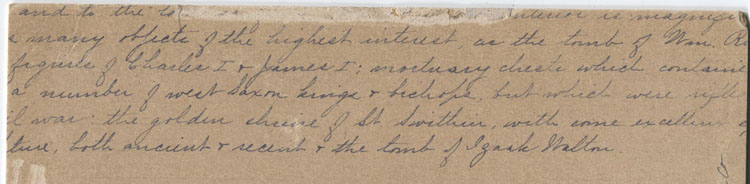 and to the interior is magnifi
many objects of the highest interest, as the tomb of Wm. R
figures of Charles I & James I; mortuary chests which containe
a number of west Saxon kings & bishops, but which were rifle
il war: the golden shrine of St Swithin, with some excellent
ture, both ancient & recent & the tomb of Izaak Walton.